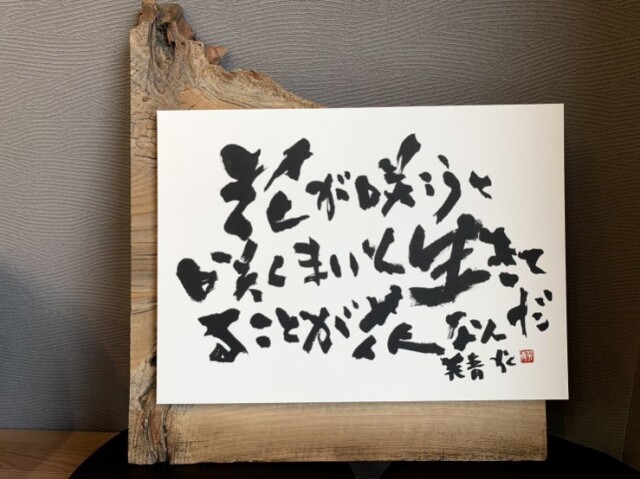 花が咲こうと
咲くまいと生きて
ることが花なんだ